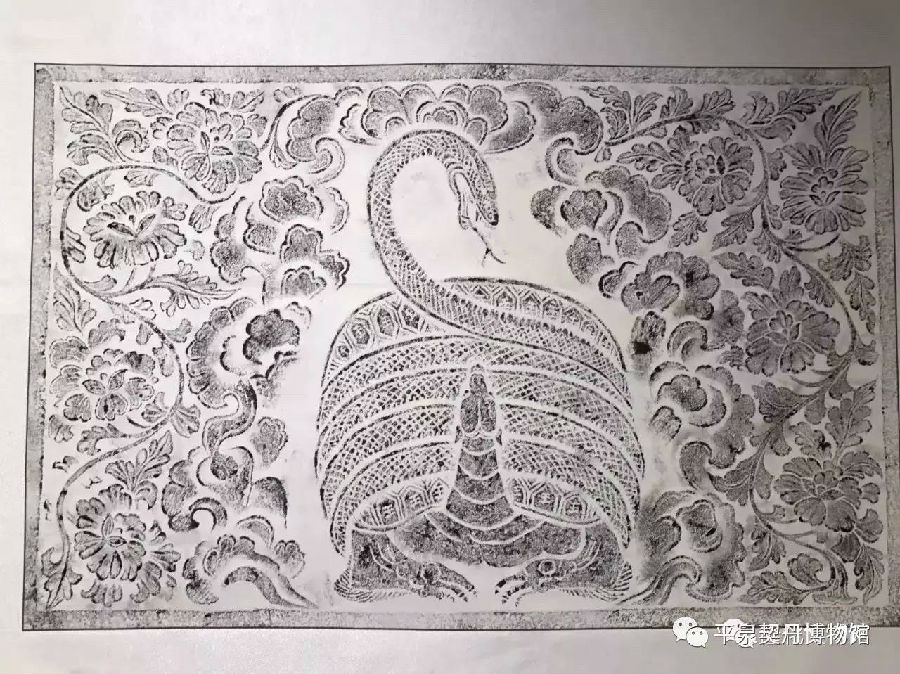 平泉契丹博物館